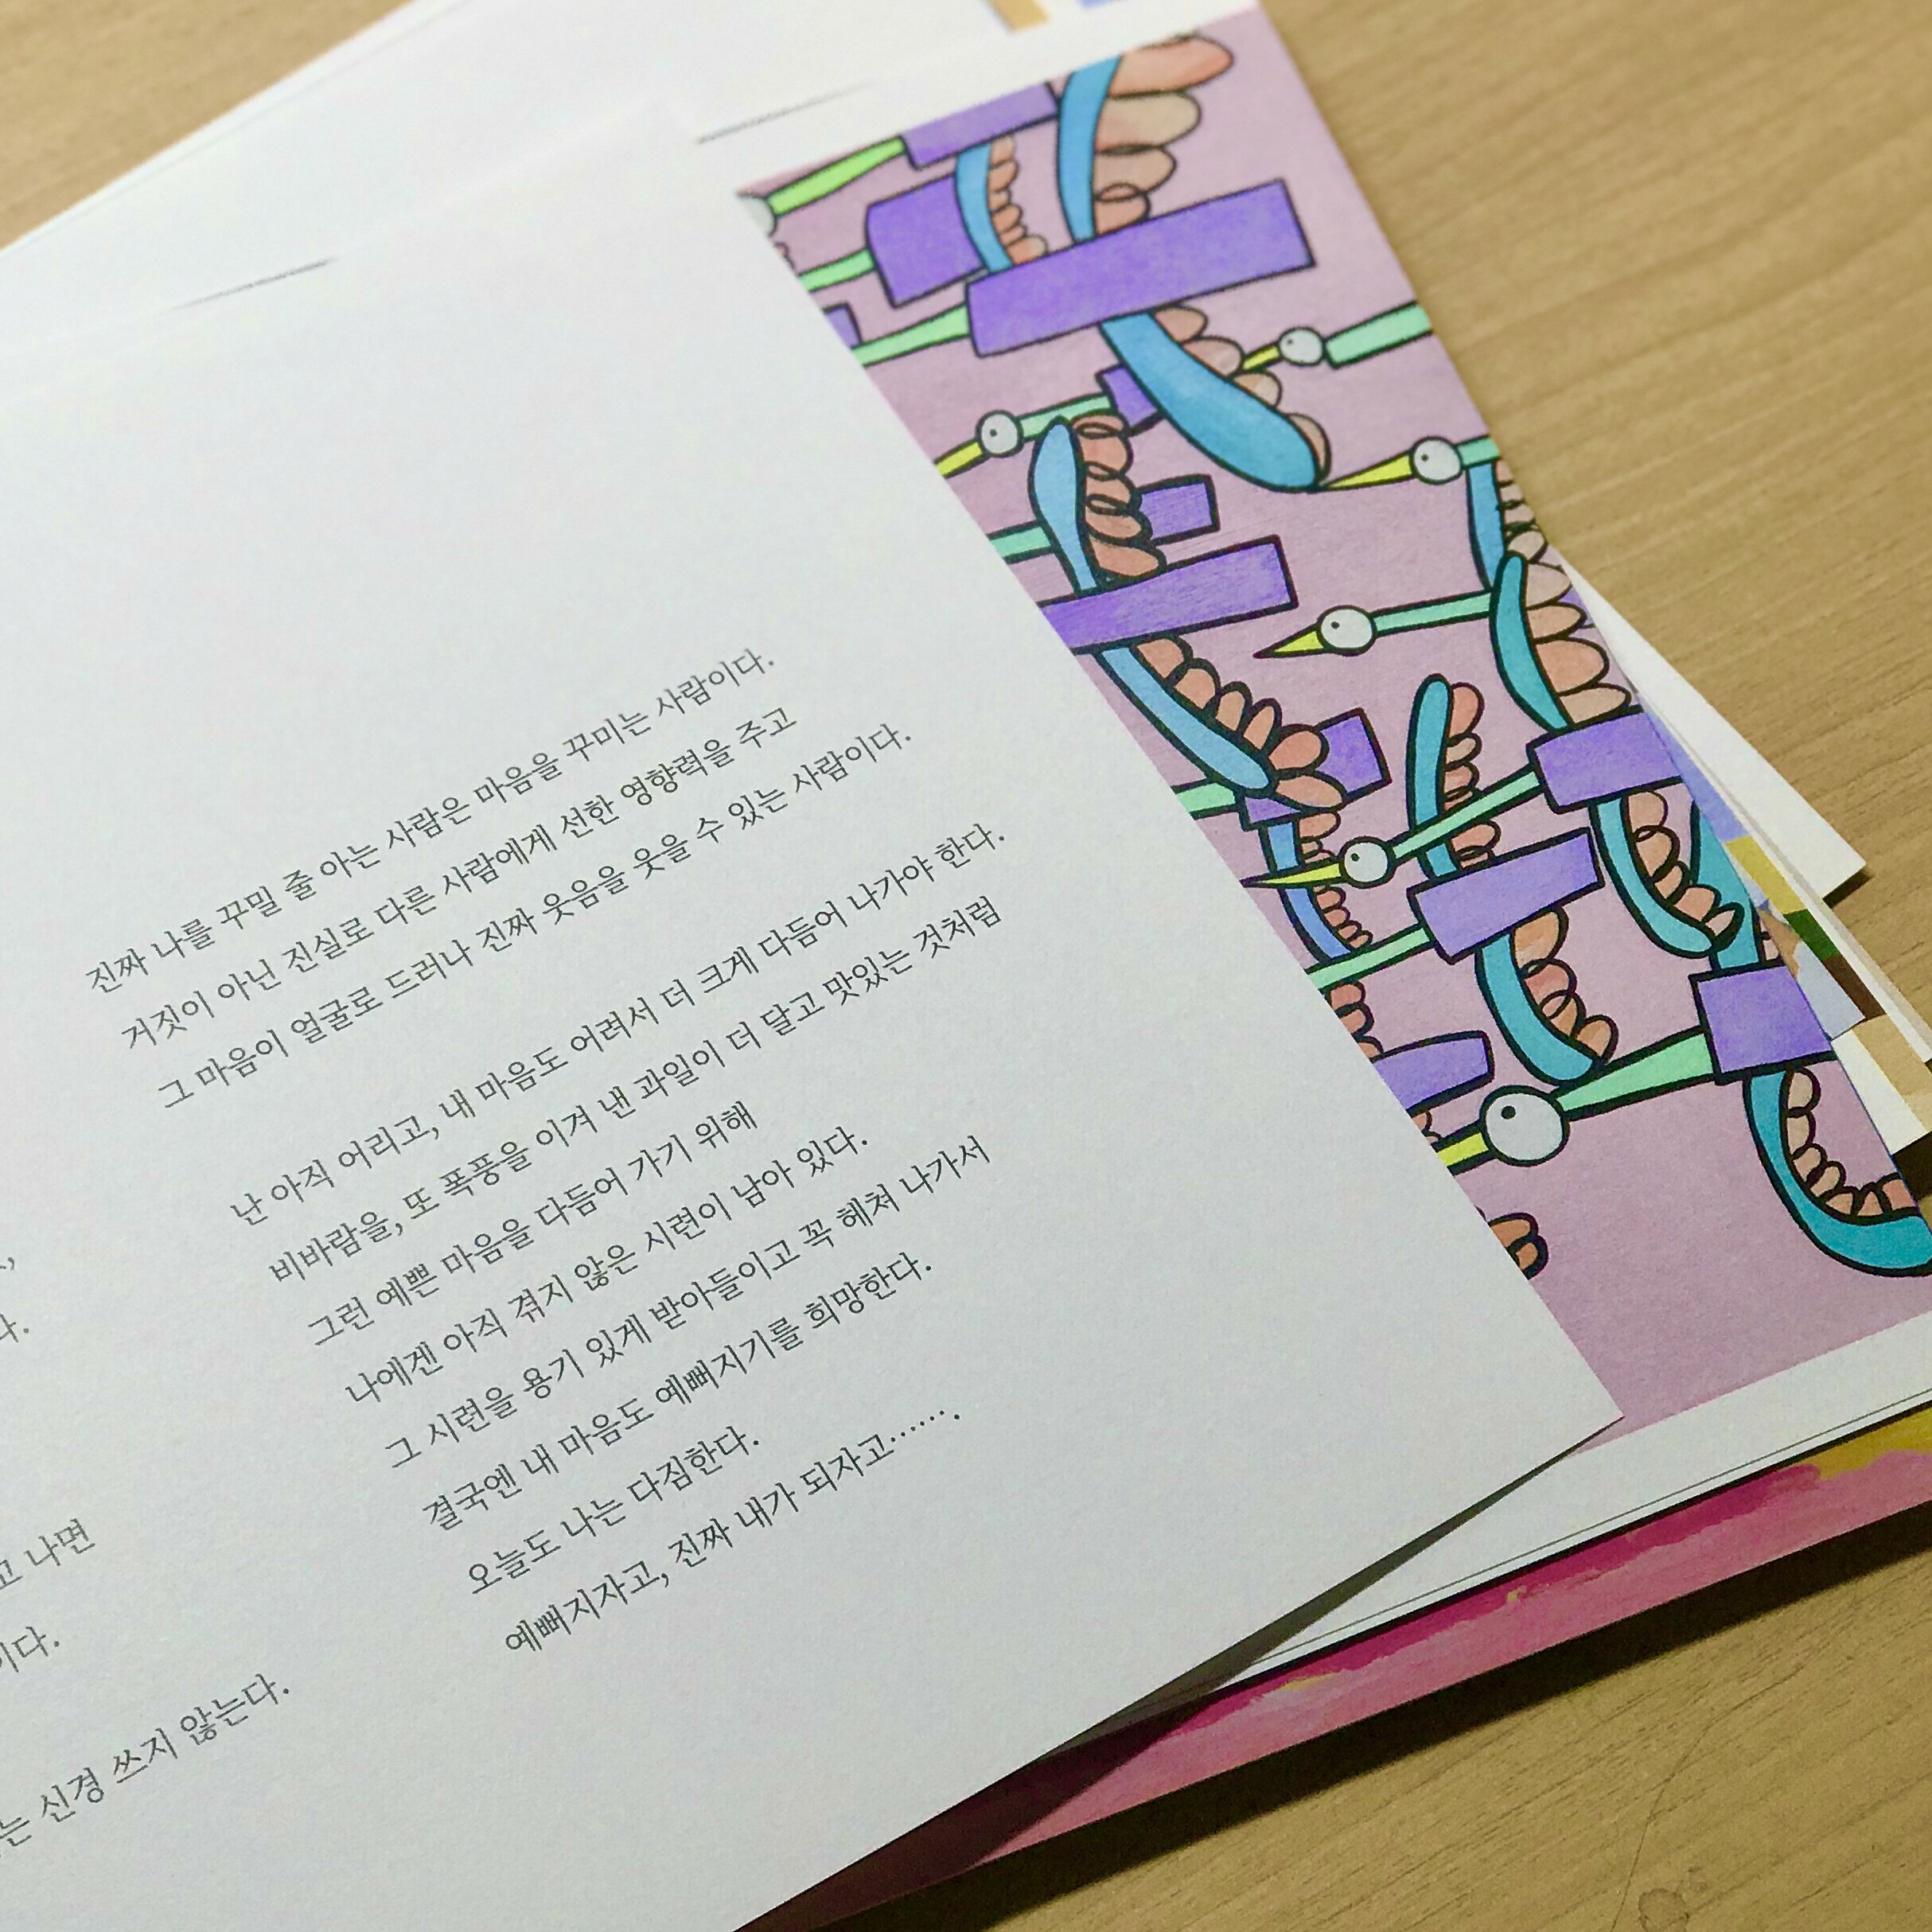 진짜 나를 꾸밀 줄 아는 사람은 마음을 꾸미는 사람이다.
거짓이 아닌 진실로 다른 사람에게 선한 영향력을 주고
그 마음이 얼굴로 드러나 진짜 웃음을 웃을 수 있는 사람이다.
난 아직 어리고, 내 마음도 어려서 더 크게 다듬어 나가야 한다.
비바람을, 또 폭풍을 이겨 낸 과일이 더 달고 맛있는 것처럼
그런 예쁜 마음을 다듬어 가기 위해
나에겐 아직 겪지 않은 시련이 남아 있다.
그 시련을 용기 있게 받아들이고 꼭 헤쳐 나가서
결국엔 내 마음도 예뻐지기를 희망한다.
오늘도 나는 다짐한다.
예뻐지자고, 진짜 내가 되자고…….
고 나면
이다.
는 신경 쓰지 않는다.